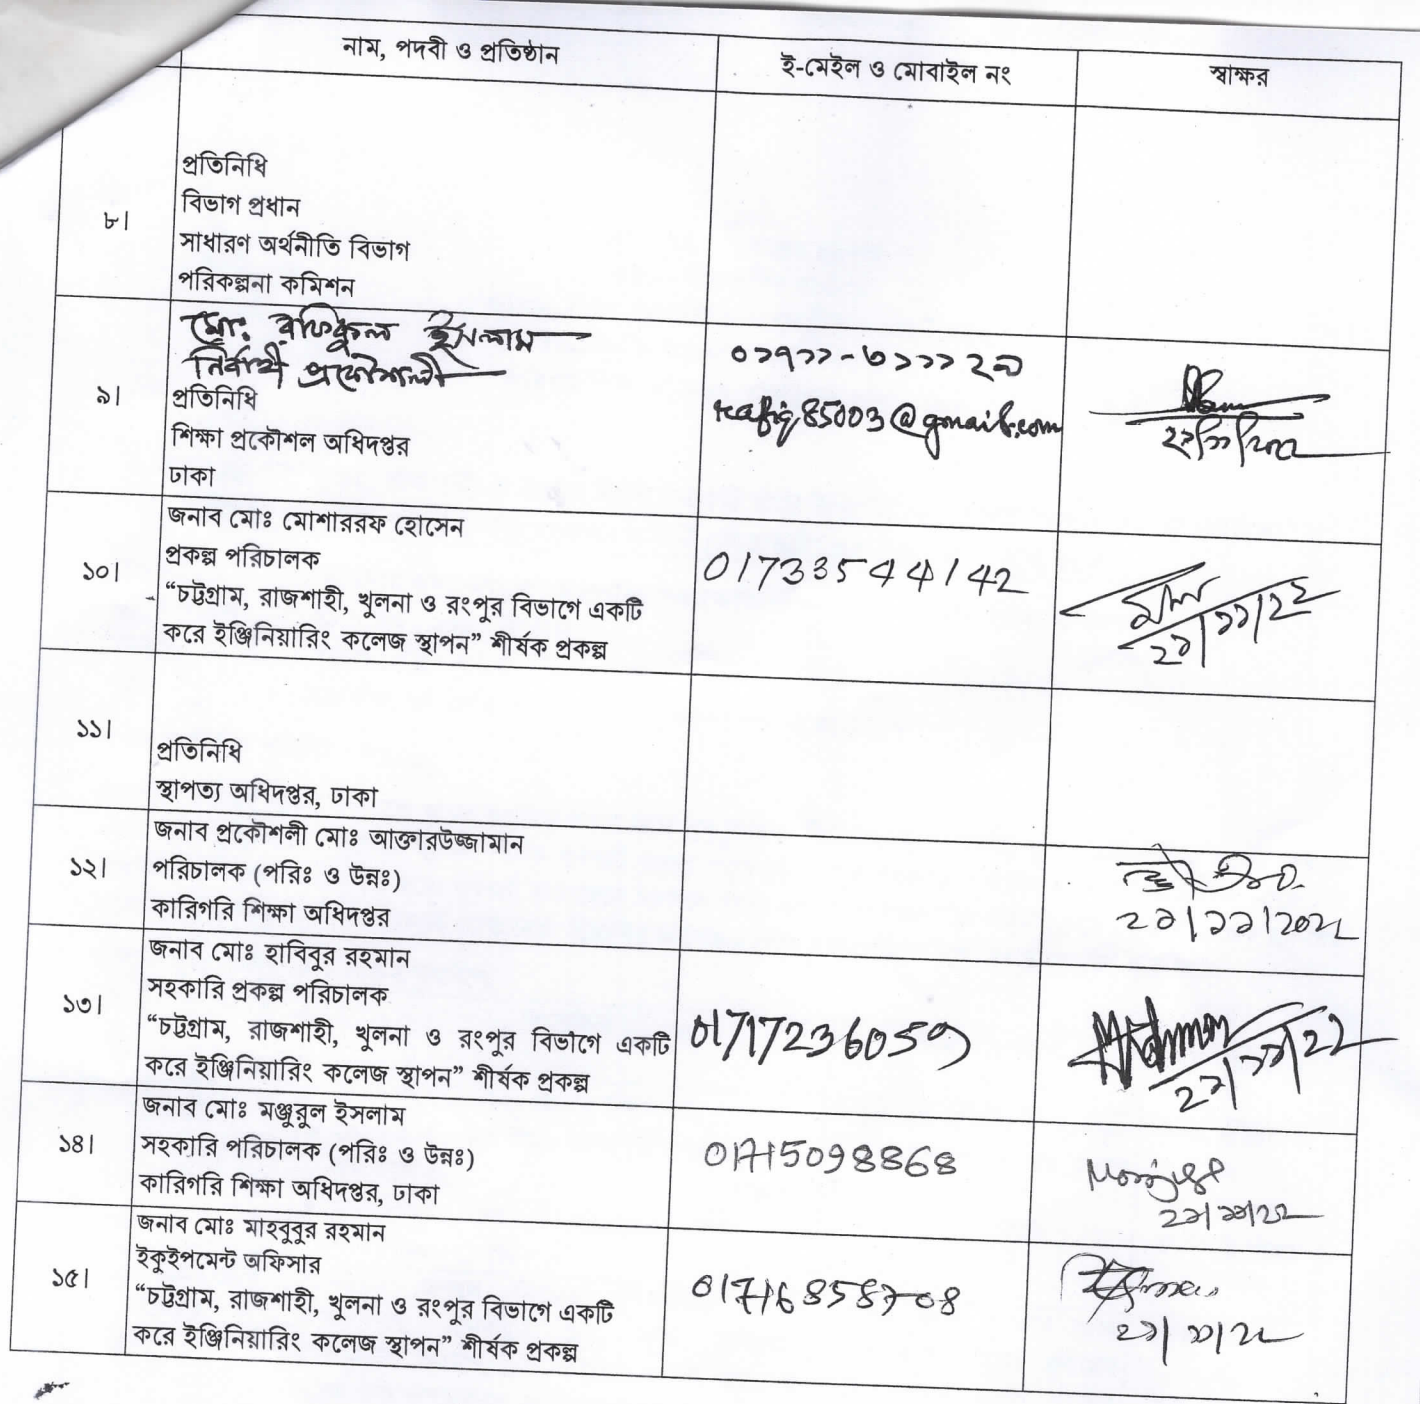 নাম, পদবী ও প্রতিষ্ঠান
ই-মেইল ও মোবাইল নং
স্বাক্ষর
৮।
প্রতিনিধি
বিভাগ প্রধান
সাধারণ অর্থনীতি বিভাগ
পরিকল্পনা কমিশন
৯।
মোঃ রফিকুল ইসলাম
নির্বাহী প্রকৌশলী
প্রতিনিধি
শিক্ষা প্রকৌশল অধিদপ্তর
ঢাকা
০১৭১১-৩১১১২৯
rafiq85003@gmail.com
১০।
জনাব মোঃ মোশাররফ হোসেন
প্রকল্প পরিচালক
“চট্টগ্রাম, রাজশাহী, খুলনা ও রংপুর বিভাগে একটি
করে ইঞ্জিনিয়ারিং কলেজ স্থাপন” শীর্ষক প্রকল্প
01733544142
২৯/১১/২২
১১।
প্রতিনিধি
স্থাপত্য অধিদপ্তর, ঢাকা
১২।
জনাব প্রকৌশলী মোঃ আক্তারউজ্জামান
পরিচালক (পরিঃ ও উন্নঃ)
কারিগরি শিক্ষা অধিদপ্তর
২৯/১১/২০২২
১৩।
জনাব মোঃ হাবিবুর রহমান
সহকারি প্রকল্প পরিচালক
“চট্টগ্রাম, রাজশাহী, খুলনা ও রংপুর বিভাগে একটি
করে ইঞ্জিনিয়ারিং কলেজ স্থাপন” শীর্ষক প্রকল্প
01717236059
২৯/১১/২২
১৪।
জনাব মোঃ মঞ্জুরুল ইসলাম
সহকারি পরিচালক (পরিঃ ও উন্নঃ)
কারিগরি শিক্ষা অধিদপ্তর, ঢাকা
01715098868
২৯/১১/২২
১৫।
জনাব মোঃ মাহবুবুর রহমান
ইকুইপমেন্ট অফিসার
“চট্টগ্রাম, রাজশাহী, খুলনা ও রংপুর বিভাগে একটি
করে ইঞ্জিনিয়ারিং কলেজ স্থাপন” শীর্ষক প্রকল্প
01716858708
২৯/১১/২২